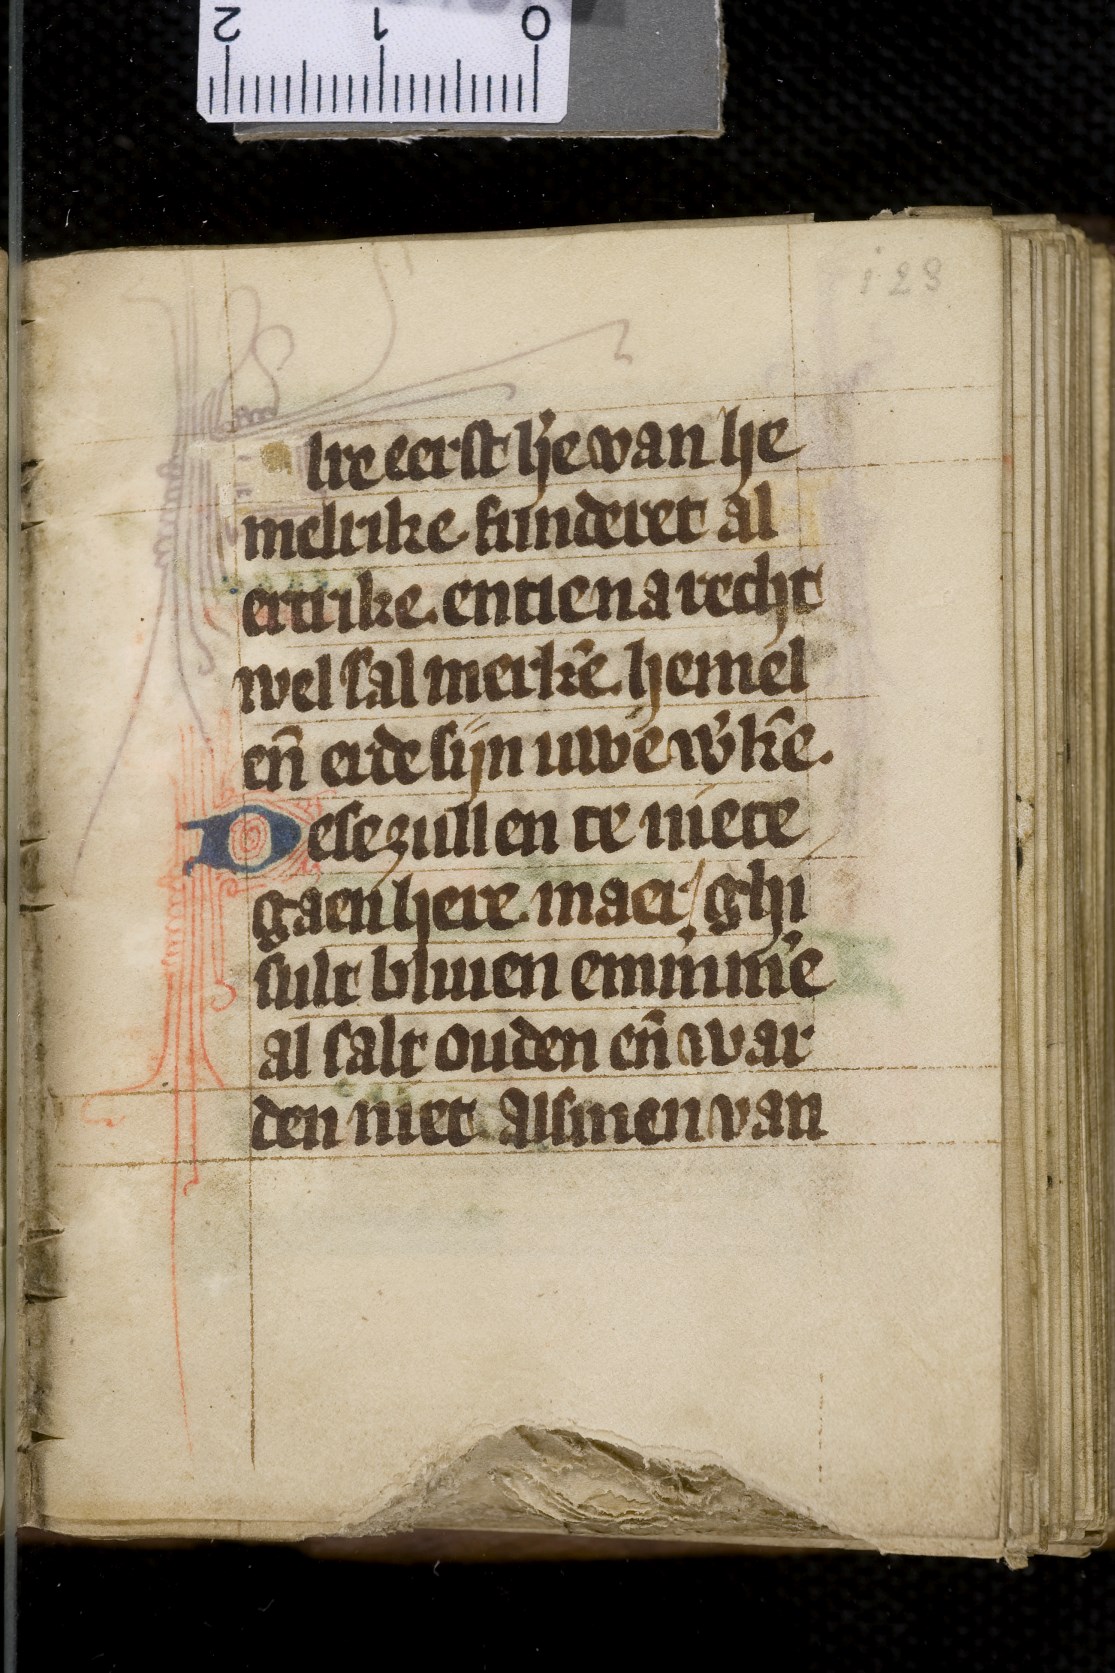 2 1 0
i23
lre eerst h̄e wan he
melrike funderet al
ertrike. entie na recht
wel sal merkē. hemel
en̄ erde sijn uwē wˀkē.
Dese zullen te niete
gaen here. maer / ghi
sult bliuen emm̄mˀe
al salt ouden en̄ war
den niet Alsmen van